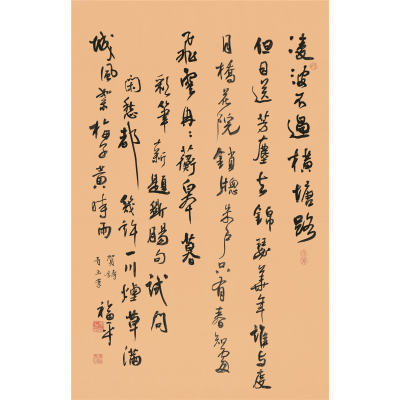 凌波不過橫塘路
但目送芳塵去錦瑟華年誰與度
月橋花院鎖牕朱户只有春知處
飛雲冉〻蘅皋暮
彩筆新題斷腸句試問
閑愁都幾許一川煙草滿
城風絮梅子黃時雨
賀鑄
青玉案
福平